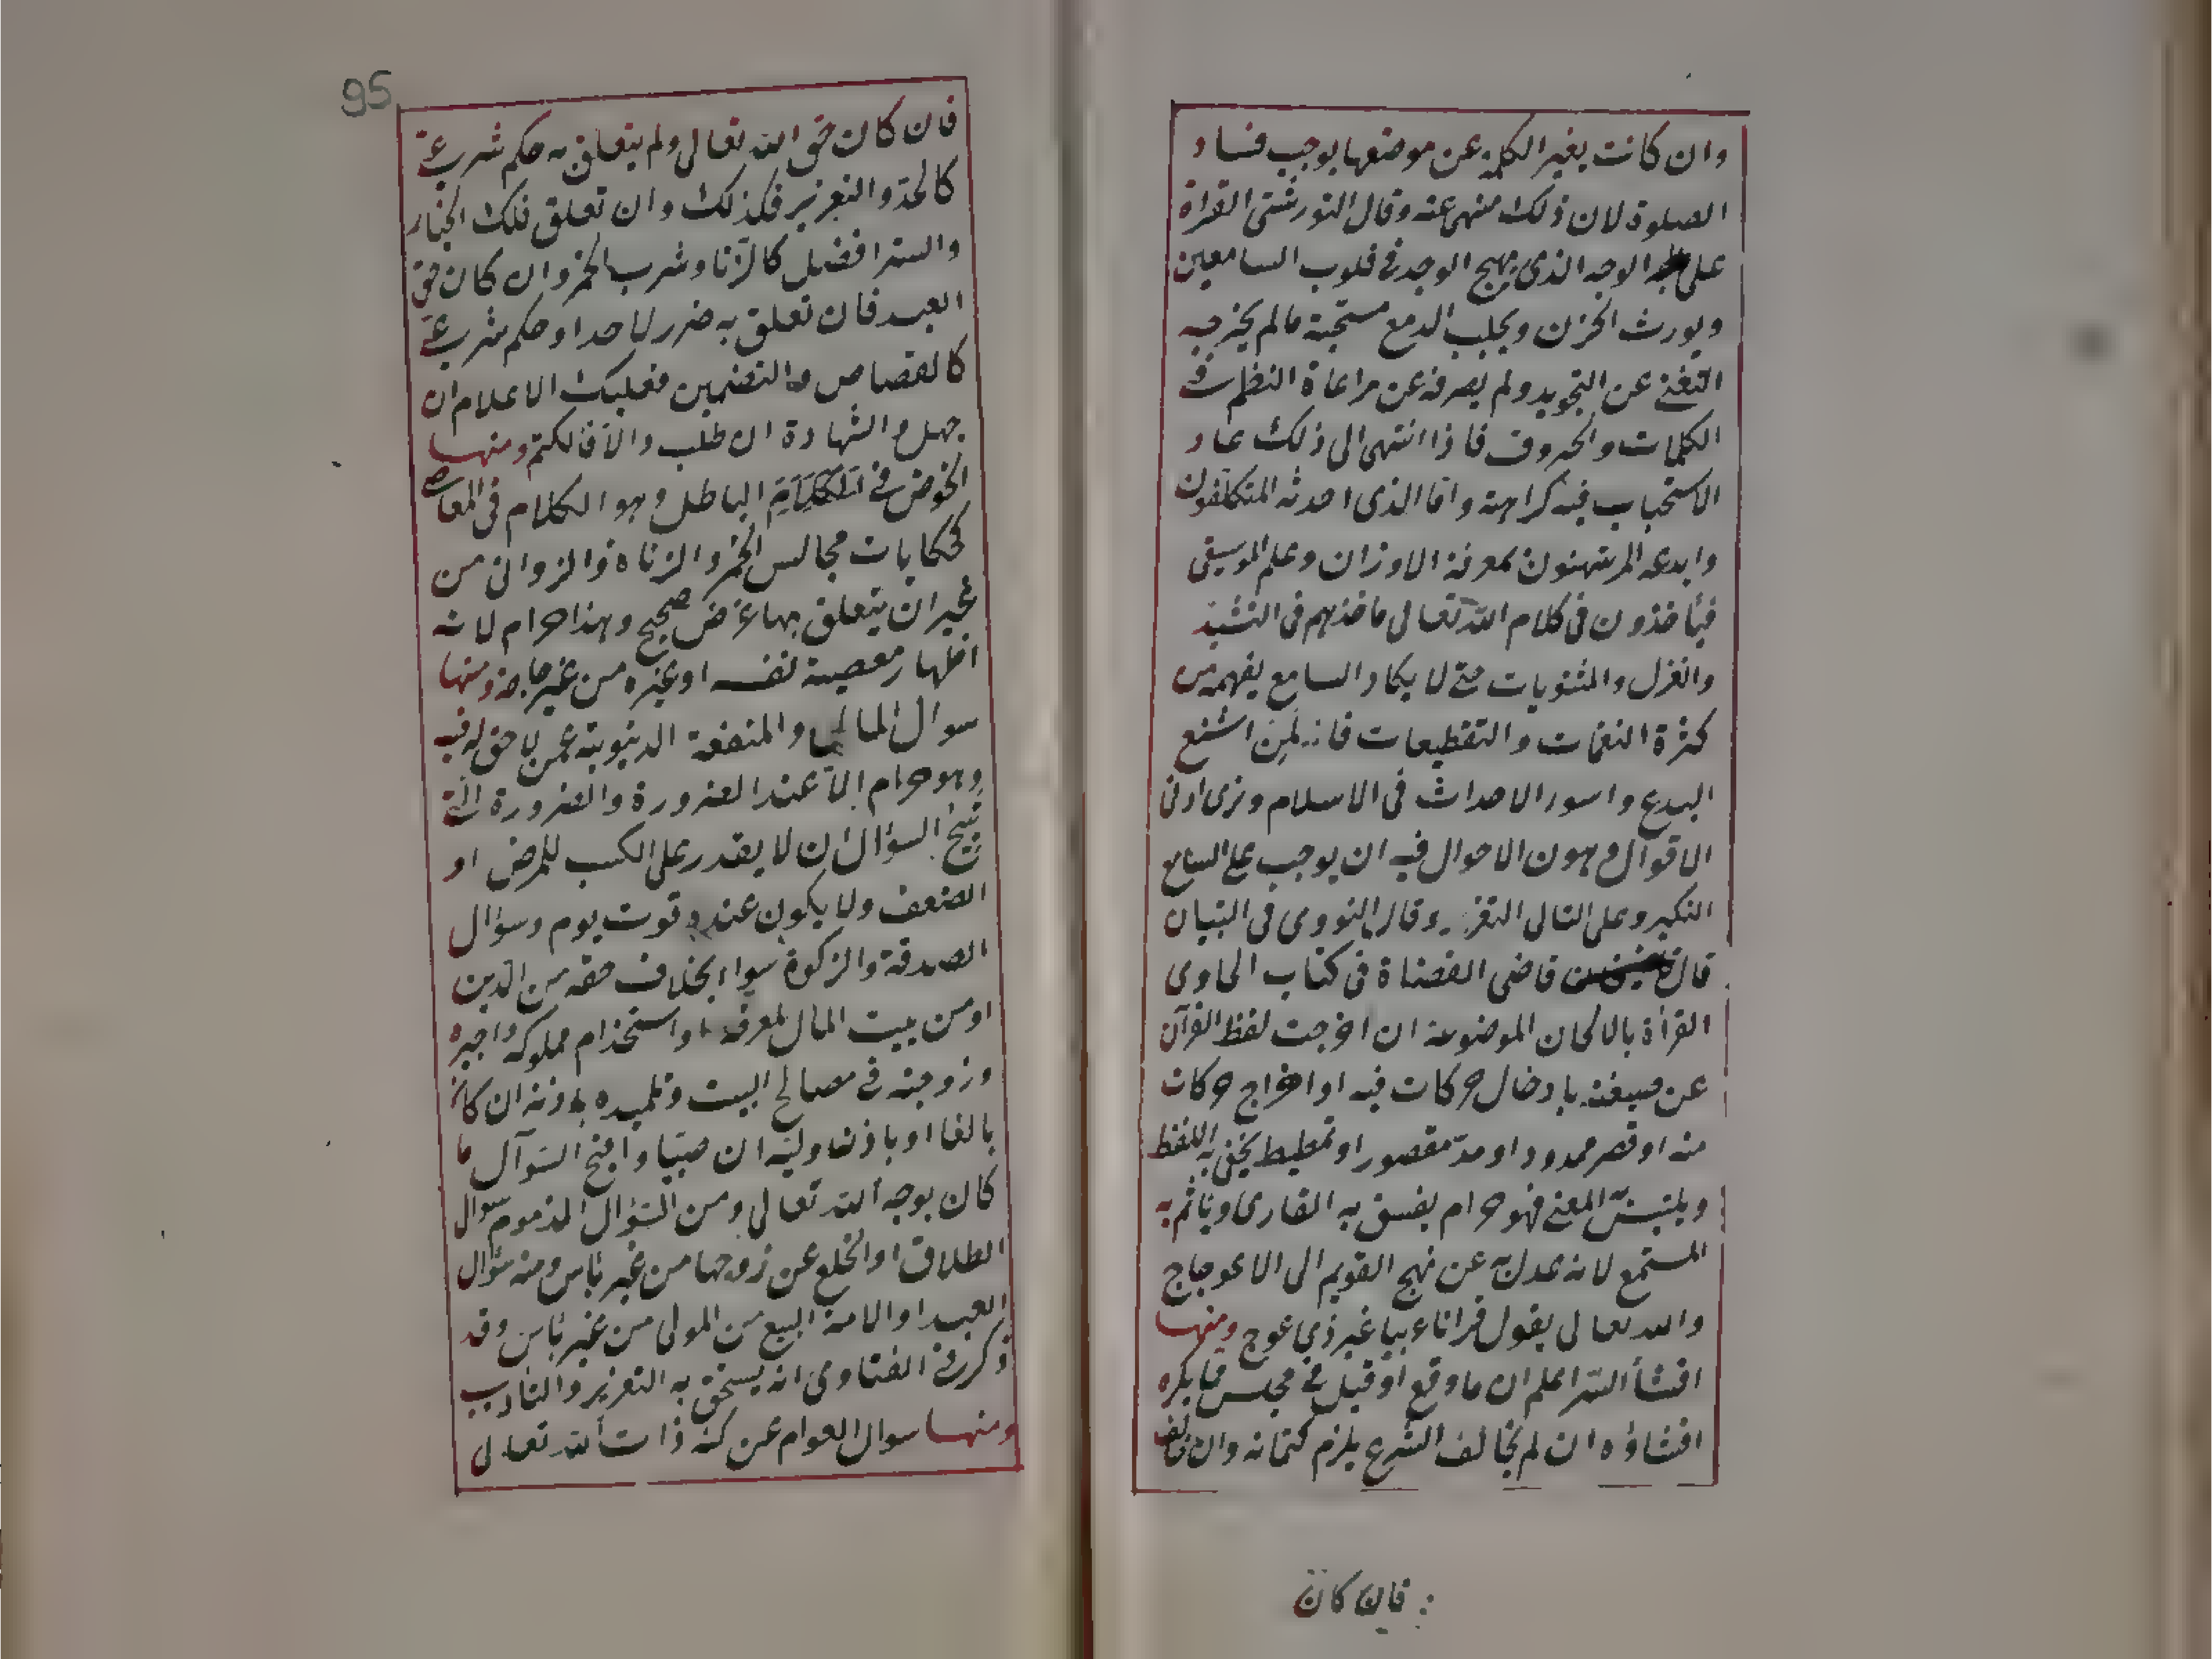 وان كانت بغير الكلمة عن موضعها يوجب فساد
الصلوة لان ذلك منهى عنه وقال التوربشتى القراة
على الوجه الذى يهيج الوجد فى قلوب السامعين
ويورث الحزن ويجلب الدمع مستحبة مالم يخرجه
التغنى عن التجويد ولم يصرفه عن مراعاة النظم فى
الكلمات والحروف فاذا انتهى الى ذلك عاد
الاستحباب فيه كراهة واما الذى احدثه المتكلفون
وابدعه المرتهنون بمعرفة الاوزان وعلم الموسيقى
فيأخذون فى كلام الله تعالى ماخذهم فى النشيد
والغزل والمثنويات حتى لا يكاد السامع يفهمه من
كثرة النغمات والتقطيعات فانه لمن اشنع
البدع واسوء الاحداث فى الاسلام ونرى ادنى
الاقوال وهون الاحوال فيه ان يوجب على السامع
النكير وعلى التالى التعزير وقال النووى فى التبيان
قال قاضى القضاة فى كتاب الحاوى
القرأة بالالحان الموضوعة ان اخرجت لفظ القرآن
عن صيغته بادخال حركات فيه او اخراج حركات
منه او قصر ممدود او مدّ مقصور او تمطيط يخفى به اللفظ
ويلتبس المعنى فهو حرام يفسق به القارى ويأثم به
المستمع لانه عدل به عن نهج القويم الى الاعوجاج
والله تعالى يقول قرانا عربيا غير ذى عوج ومنها
افشأ السّر اعلم ان ما وقع او قيل فى مجلس مما يكره
افشاؤه ان لم يخالف الشرع يلزم كتمانه وان خالف
فان كان
95
فان كان حق الله تعالى ولم يتعلق به حكم شرعىّ
كالحدّ والتعزير فكذلك وان تعلق فلك الخيار
والستر افضل كالزّنا وشرب الخمر وان كان حق
العبد فان تعلق به ضرر لاحد او حكم شرعىّ
كالقصاص والتضمين فعليك الاعلام ان
جهل والشهادة ان طلب والّا فالكتم ومنها
الخوض فى الباطل وهو الكلام فى المعاصى
كحكايات مجالس الخمر والزناة والزوانى من
غير ان يتعلق بها غرض صحيح وهذا حرام لانه
اظهار معصية نفسه او غيره من غير حاجة ومنها
سوال المال والمنفعة الدنيوية عمن لا حق له فيه
وهو حرام الّا عند الضرورة والضرورة التى
تبيح السؤال ان لا يقدر على الكسب للمرض او
الضعف ولا يكون عنده قوت يوم وسؤال
الصدقة والزكوة سواء بخلاف حقه من الدين
او من بيت المال لمعرفه او استخدام مملوكه واجيره
وزوجته فى مصالح البيت وتلميذه باذنه ان كان
بالغا او باذن وليّه ان صبيّا واقبح السّوآل ما
كان بوجه الله تعالى ومن السّؤال المذموم سوال
الطلاق او الخلع عن زوجها من غير بأس ومنه سؤال
العبد او الامة البيع من المولى من غير بأس وقد
ذكر فى الفتاوى انه يستحق به التعزير والتأديب
ومنها سوال العوام عن كنه ذات الله تعالى